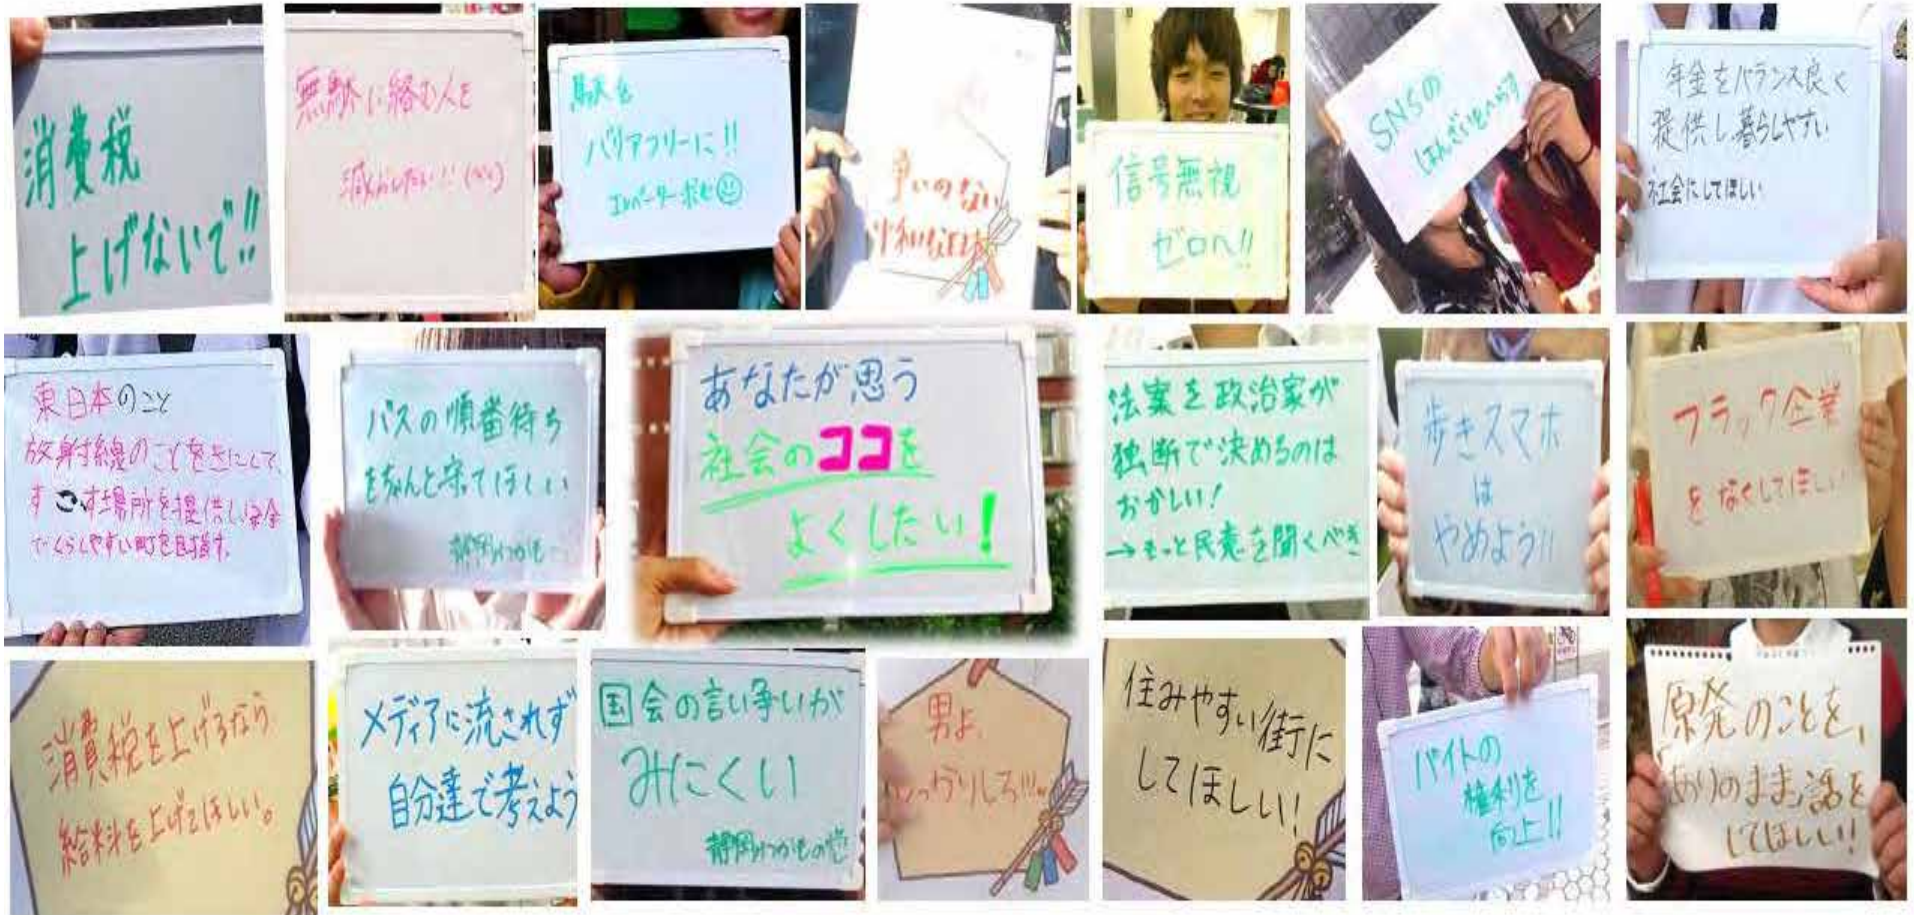 消費税
上げないで!!
無駄に絡む人を
減らしたい!!
駅を
バリアフリーに!!
エレベーター求む
争いのない
平和な日本
信号無視
ゼロへ!!
SNSの
はんざいをへらす
年金をバランス良く
提供し暮らしやすい
社会にしてほしい
東日本のこと
放射線のことをきにして、
すごす場所を提供し安全
でくらしやすい町を目指す。
バスの順番待ち
をちゃんと守てほしい
静岡わかもの
あなたが思う
社会のココを
よくしたい!
法案を政治家が
独断で決めるのは
おかしい!
→もっと民意を聞くべき
歩きスマホ
は
やめよう!!
ブラック企業
をなくしてほしい
消費税を上げるなら
給料を上げてほしい。
メディアに流されず
自分達で考えよう
国会の言い争いが
みにくい
静岡わかもの党
男よ、
しっかりしろ!!!
住みやすい街に
してほしい!
バイトの
権利を
向上!!
原発のことを、
ありのまま話を
してほしい!